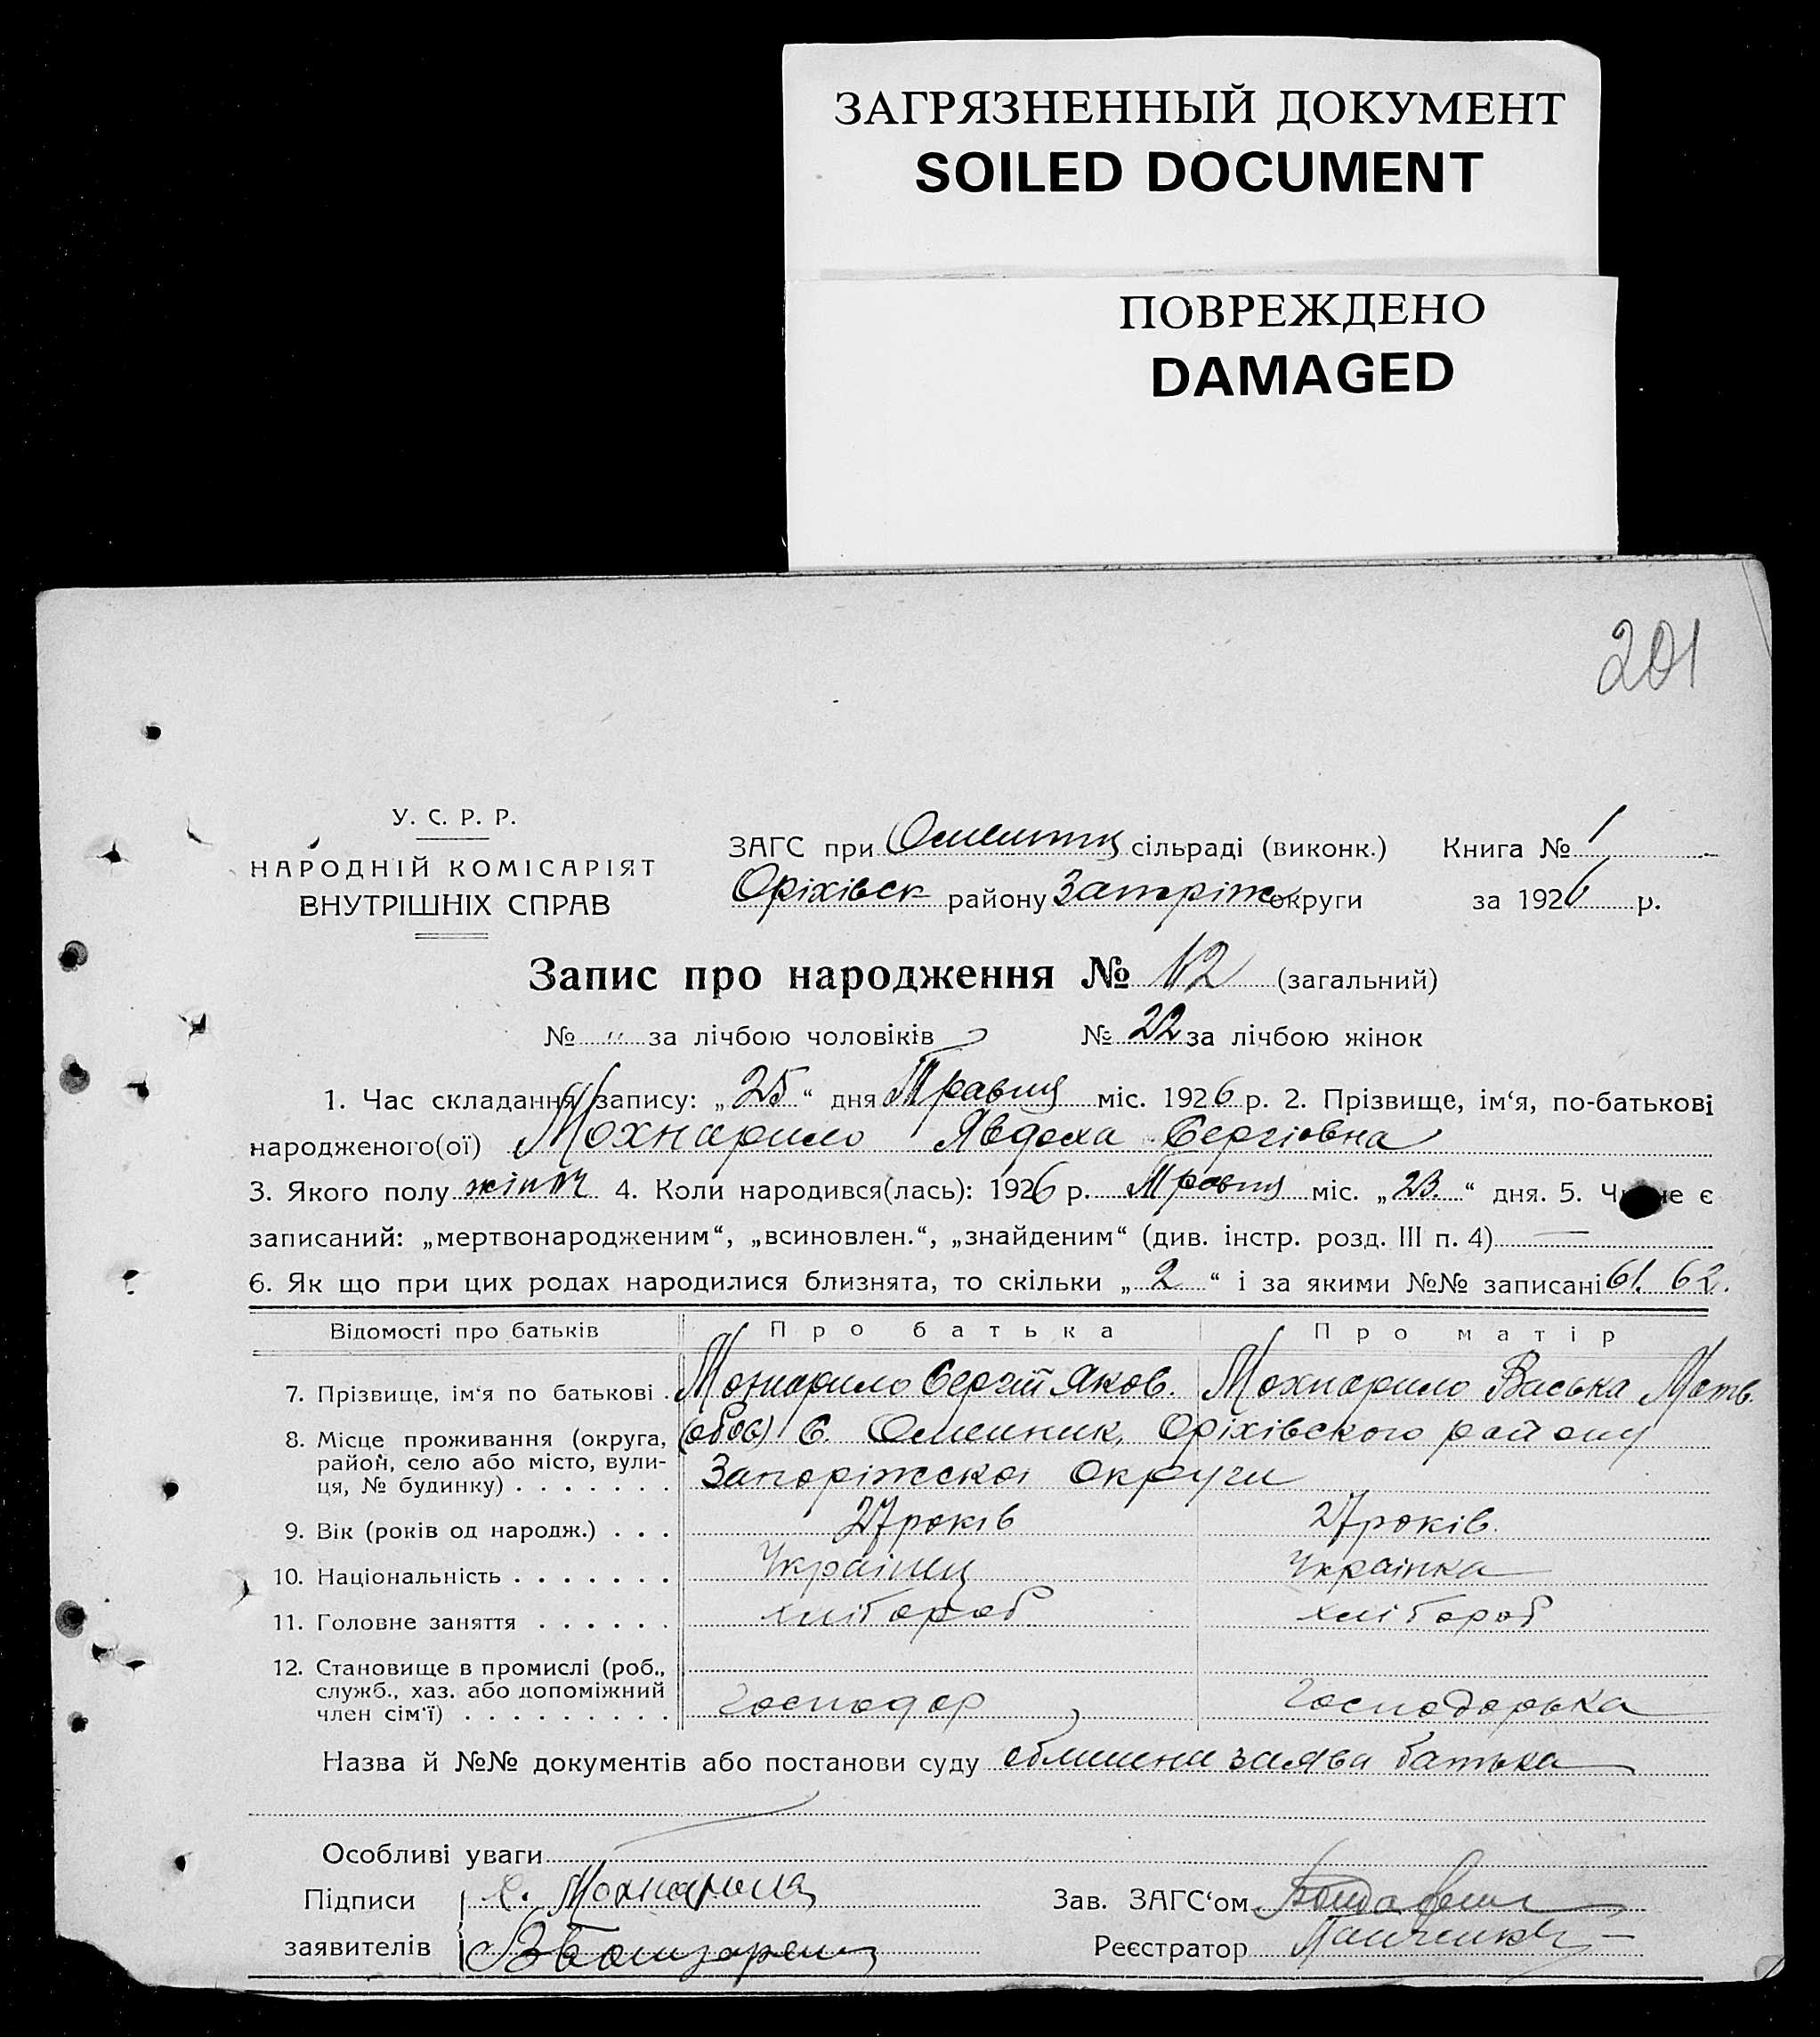 ЗАГРЯЗНЕННЫЙ ДОКУМЕНТ
SOILED DOCUMENT
ПОВРЕЖДЕНО
DAMAGED
201
У. С. Р. Р.
НАРОДНІЙ КОМІСАРІЯТ
ВНУТРІШНІХ СПРАВ
ЗАГС при сільраді (виконк.) Книга № 1
Оріхівськ району Запоріж округи за 1926 р.
Запис про народження № (загальний)
№ " за лічбою чоловіків № 22 за лічбою жінок
1. Час складання запису: „25“ дня Травня міс. 1926 р. 2. Прізвище, ім‘я, по-батькові
народженого(ої) Мохнарило Явдоха Сергіовна
3. Якого полу жіноч 4. Коли народився(лась): 1926 р. Травня міс. „23.“ дня. 5. Чи не є
записаний: „мертвонародженим“, „всиновлен.“, „знайденим“ (див. інстр. розд. III п. 4) —
6. Як що при цих родах народилися близнята, то скільки „2“ і за якими №№ записані 61. 62.
Відомості про батьків Про батька Про матір
7. Прізвище, ім‘я по батькові . Мохнарило Сергій Яков. Мохнарило Васька Матв.
8. Місце проживання (округа, (обоє) С. Омельник, Оріхівского району
район, село або місто, вули- Запоріжскоі округи
ця, № будинку) . . . . . . .
9. Вік (років од народж.) . . . 27 років 27 років.
10. Національність . . . . . . . Українец Українка
11. Головне заняття . . . . . . хлібороб хлібороб
12. Становище в промислі (роб.,
служб., хаз. або допоміжний
член сім‘ї) . . . . . . . . . Господар Господарька
Назва й №№ документів або постанови суду заява батька
Особливі уваги
Підписи С. Мохнарила Зав. ЗАГС‘ом
заявителів Реєстратор Панченко